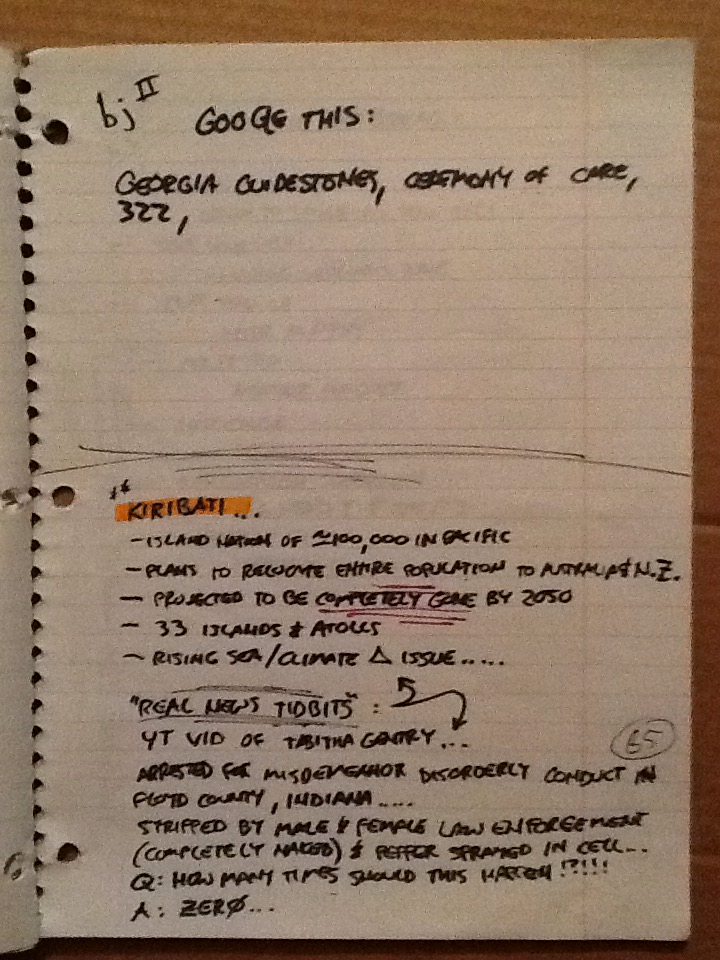 bj II
GOOGLE THIS:
GEORGIA GUIDESTONES, CEREMONY OF CARE,
322,
** KIRIBATI...
- ISLAND NATION OF ≃100,000 IN PACIFIC
- PLANS TO RELOCATE ENTIRE POPULATION TO AUSTRALIA & N.Z.
- PROJECTED TO BE COMPLETELY GONE BY 2050
- 33 ISLANDS & ATOLLS
- RISING SEA/CLIMATE Δ ISSUE.....
"REAL NEWS TIDBITS":
YT VID OF TABITHA GENTRY...
65
ARRESTED FOR MISDEMEANOR DISORDERLY CONDUCT IN
FLOYD COUNTY, INDIANA.....
STRIPPED BY MALE & FEMALE LAW ENFORCEMENT
(COMPLETELY NAKED) & PEPPER SPRAYED IN CELL...
Q: HOW MANY TIMES SHOULD THIS HAPPEN!?!!!
A: ZERØ...